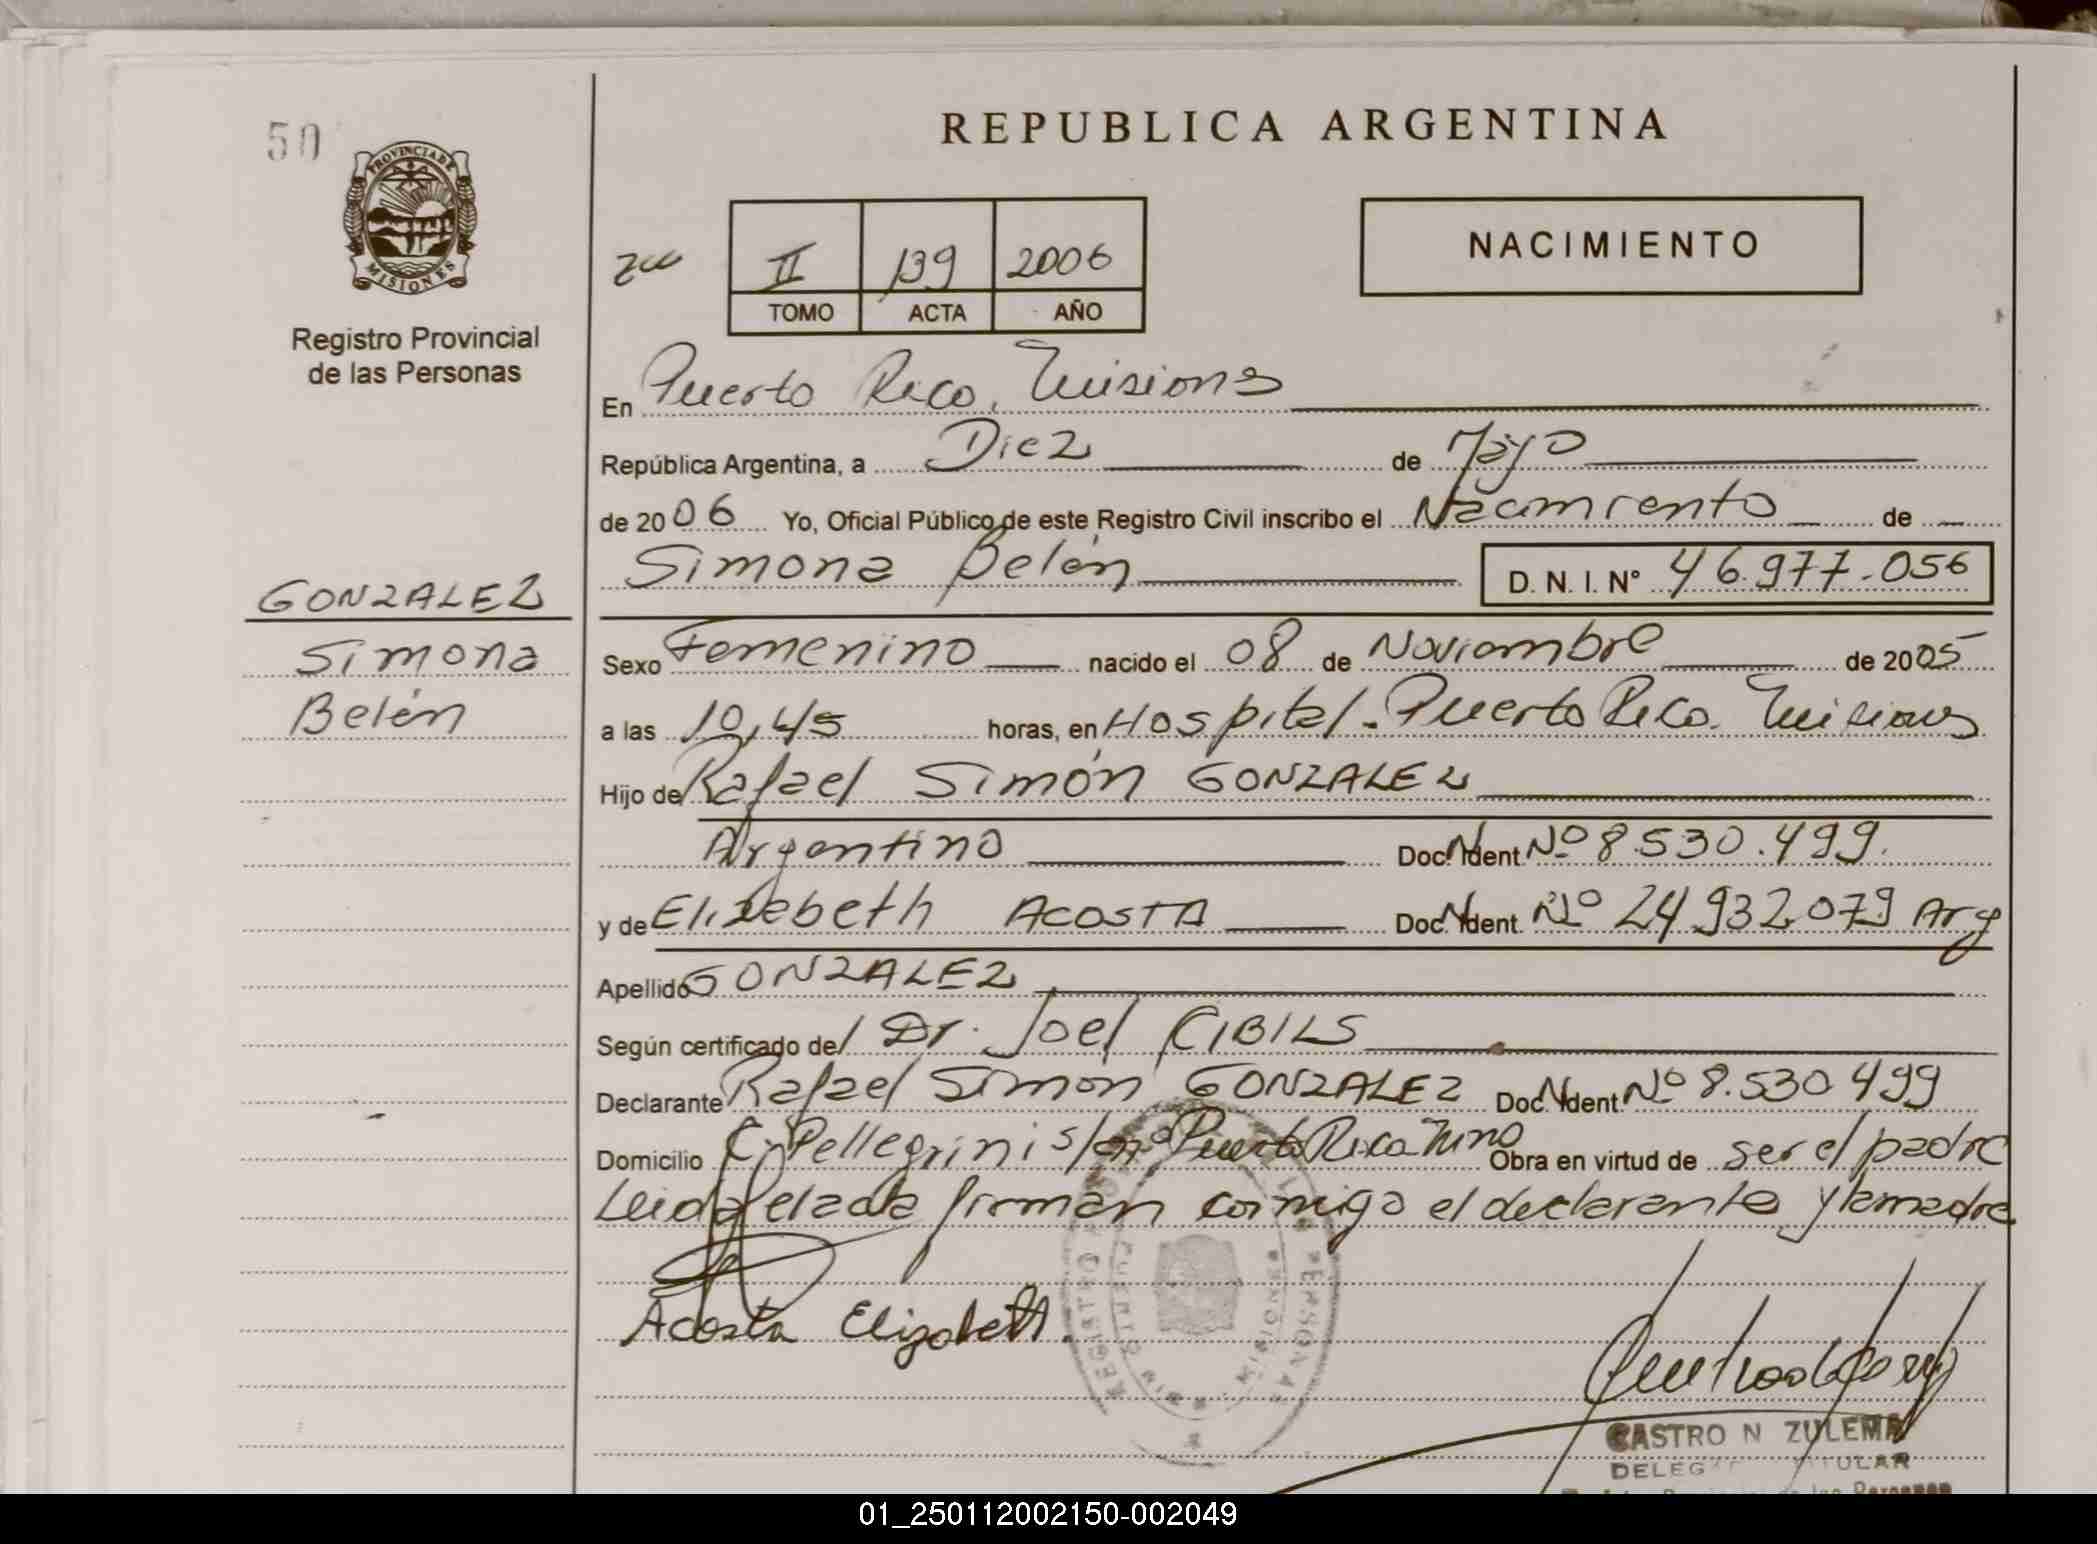 50
PROVINCIA DE
MISIONES
Registro Provincial
de las Personas
REPUBLICA ARGENTINA
II 139 2006
TOMO ACTA AÑO
NACIMIENTO
En Puerto Rico, Misiones
República Argentina, a Diez de Mayo
de 2006 Yo, Oficial Público de este Registro Civil inscribo el Nacimiento de
Simona Belén D. N. I. N° 46.977.056
GONZALEZ
Simona
Belén
Sexo Femenino nacido el 08 de Noviembre de 2005
a las 10,45 horas, en Hospital - Puerto Rico. Misiones
Hijo de Rafael Simón GONZALEZ
Argentino Doc. Ident Nº 8.530.499.
y de Elizebeth ACOSTA Doc. Ident. Nº 24.932.079 Arg
Apellido GONZALEZ
Según certificado del Dr. Joel CIBILS
Declarante Rafael Simón GONZALEZ Doc. Ident Nº 8.530 499
Domicilio C. Pellegrini s/nº Puerto Rico Mnes Obra en virtud de ser el padre
Leida el acta firman conmigo el declarante y la madre
Acosta Elizabeth.
REGISTRO PERSONAS
PUERTO MISIONES
CASTRO N ZULEMA
DELEGADA TITULAR
01_250112002150-002049